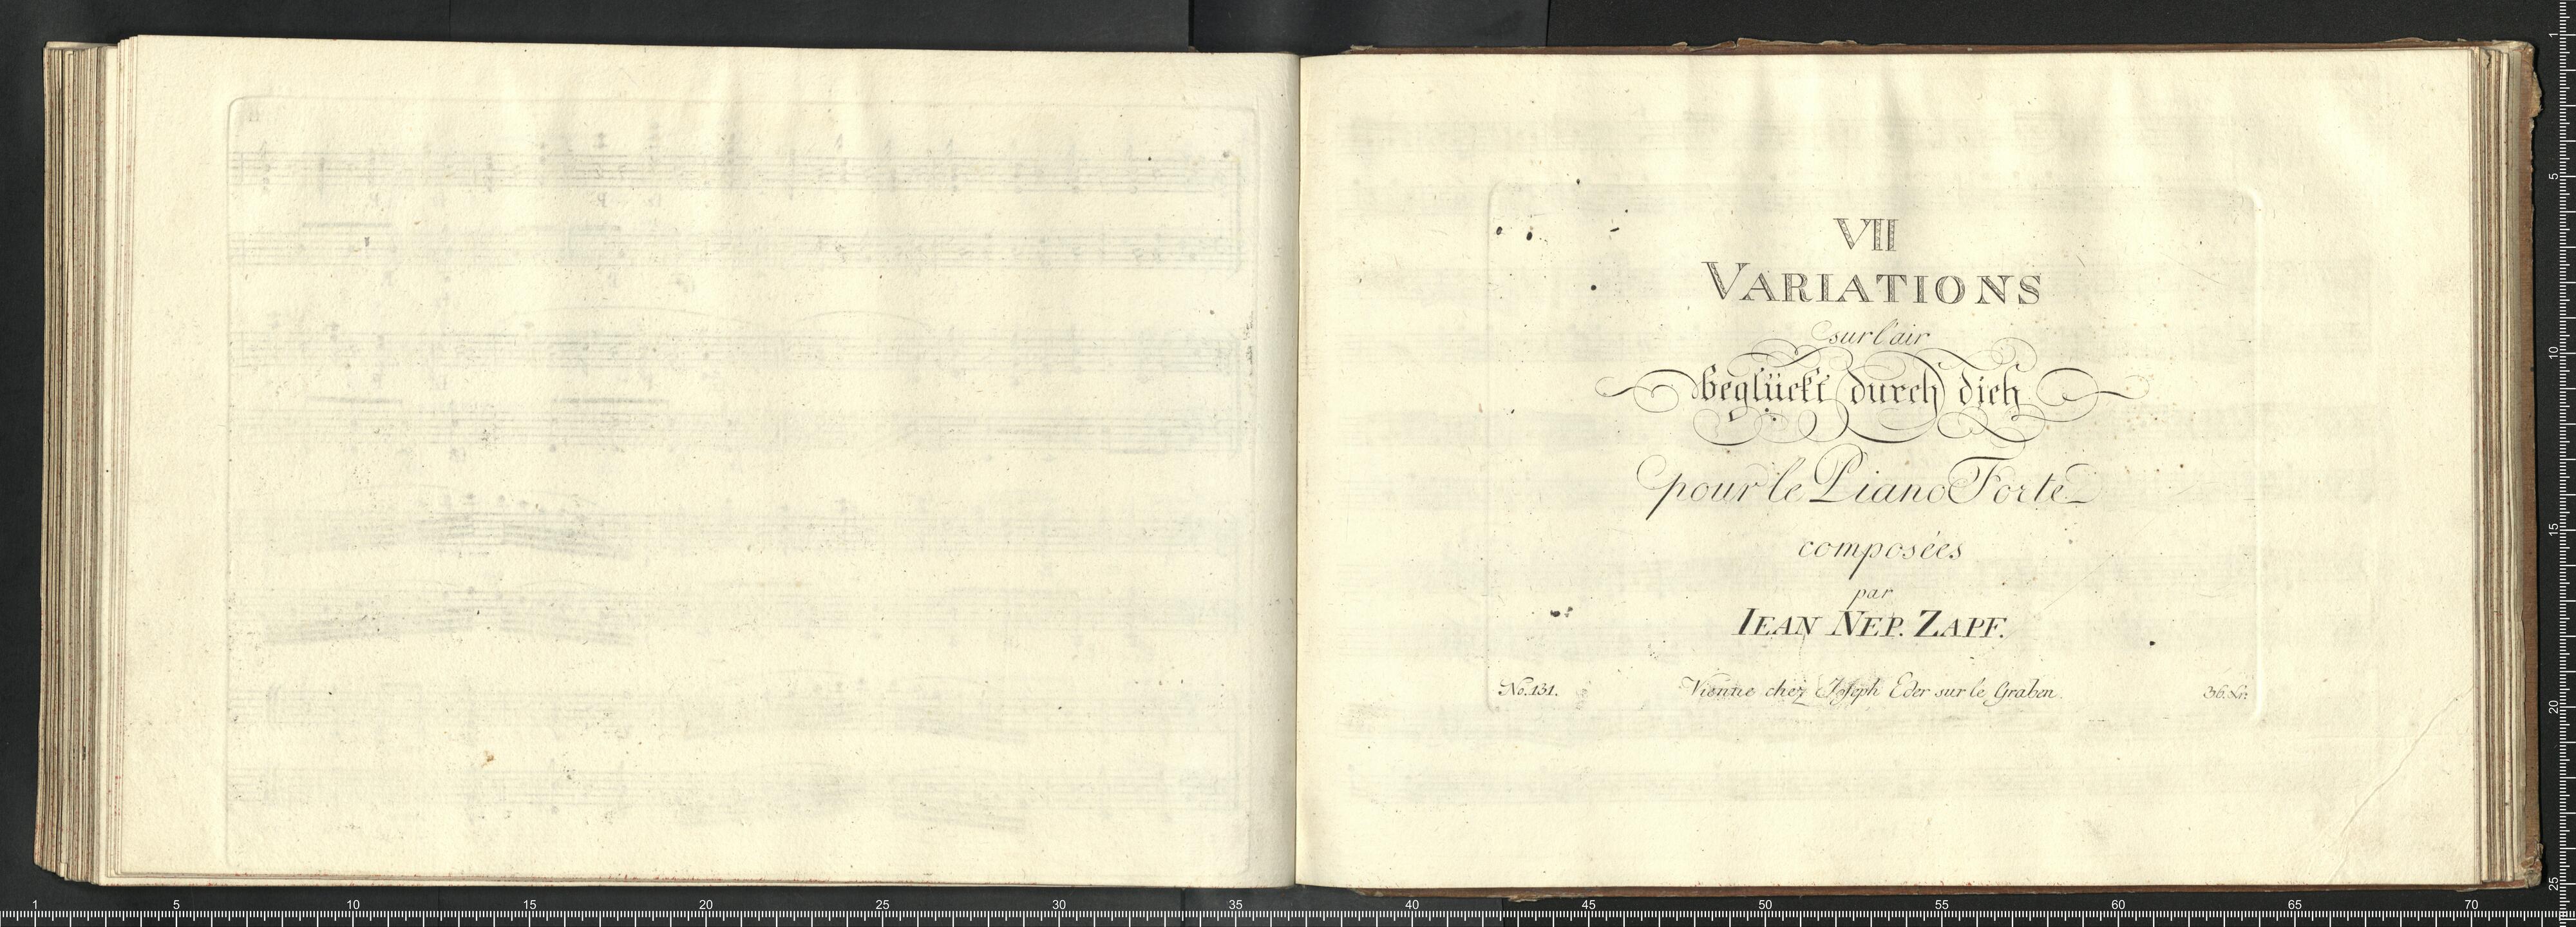 VII
VARIATIONS
sur l'air
beglückt durch dich
pour le Piano Forte
composées
par
IEAN NEP. ZAPF.
No. 131. Vienne chez Joseph Eder sur le Graben. 36. Xr.
1 5 10 15 20 25 30 35 40 45 50 55 60 65 70
1
5
10
15
20
25